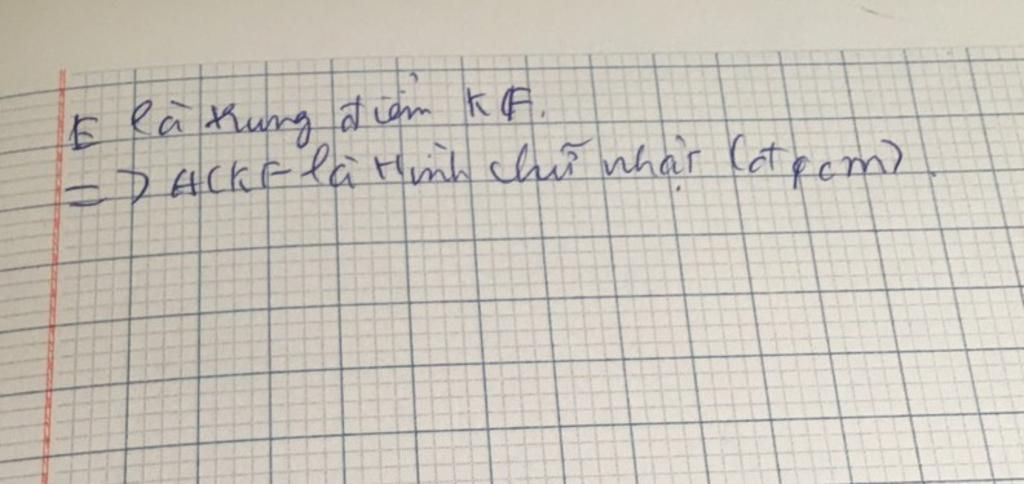 E là trung điểm KF.
=> ACKF là Hình chữ nhật (đpcm).